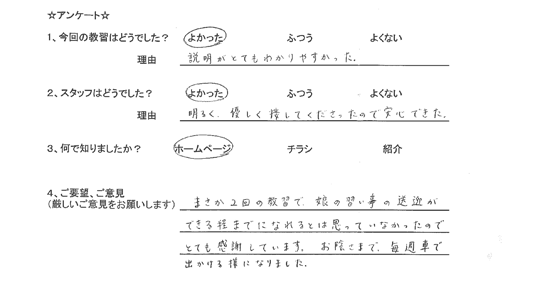 ☆アンケート☆
1、今回の教習はどうでした？ よかった ふつう よくない
理由 説明がとてもわかりやすかった.
2、スタッフはどうでした？ よかった ふつう よくない
理由 明るく、優しく接してくださったので安心できた.
3、何で知りましたか？ ホームページ チラシ 紹介
4、ご要望、ご意見
(厳しいご意見をお願いします) まさか2回の教習で、娘の習い事の送迎が
できる程までになれるとは思っていなかったので
とても感謝しています。お陰さまで、毎週車で
出かける様になりました.